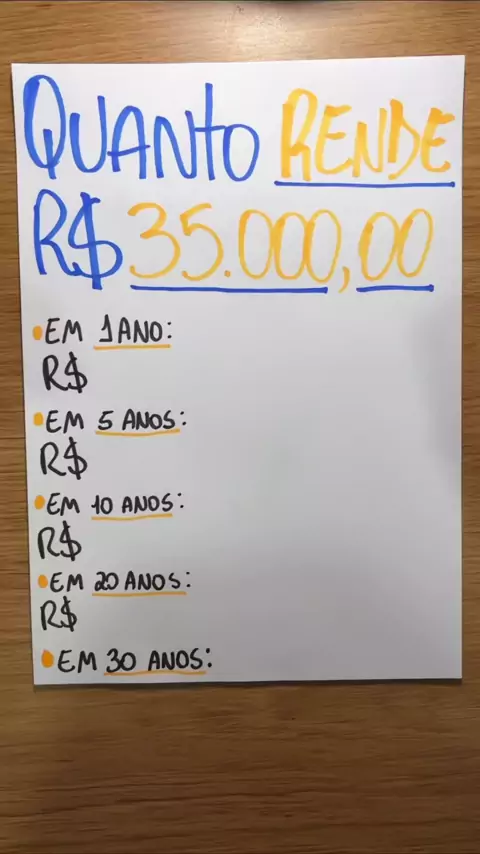 QUANTO RENDE
R$ 35.000,00
•EM 1 ANO:
R$
•EM 5 ANOS:
R$
•EM 10 ANOS:
R$
•EM 20 ANOS:
R$
•EM 30 ANOS: